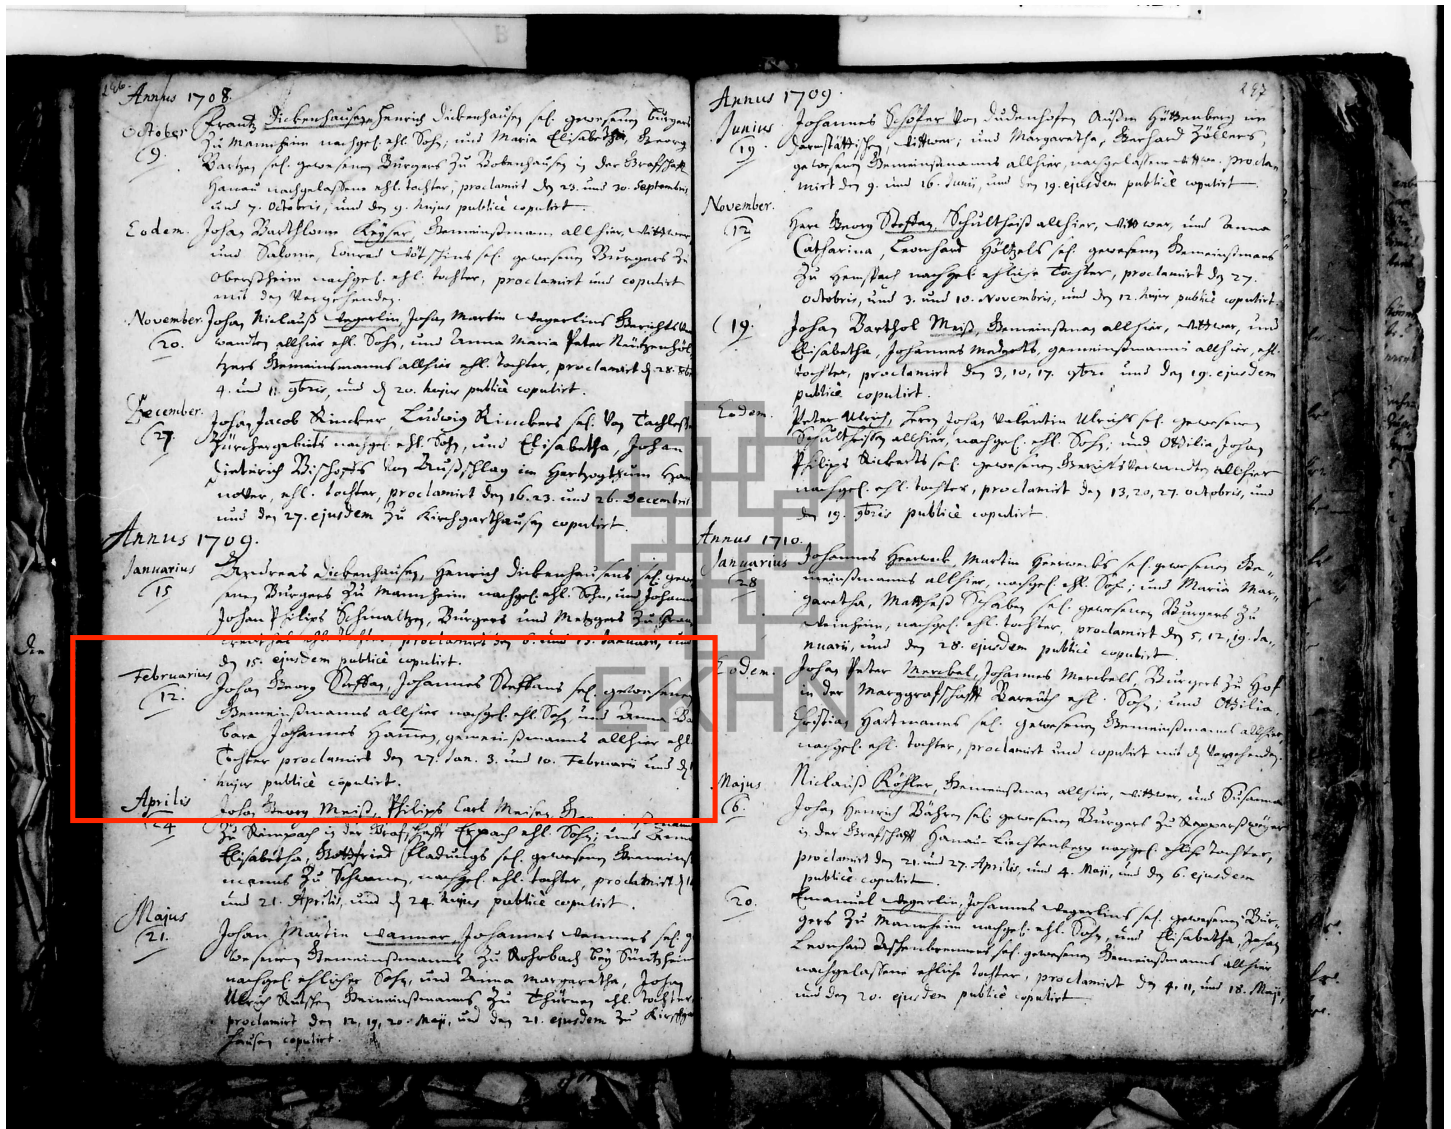 296.
Annus 1708.
October. Frantz Dickenhausen, Henrich Dickenhausen sel. gewesenen burgers
(9. zu Mannheim nachgel. ehl. Sohn; und Maria Elisabetha, Georg
sel. gewesenen Burgers zu Bobenhausen in der Graffschafft
Hanau nachgelassene ehl. tochter; proclamirt den 23. und 30. Septembris
und 7. Octobris, und den 9. hujus publicè copulirt.
Eodem. Johan Barthlome Keyser, Gemeinßmann allhier, Wittwer,
und Salome, Conrad sel. gewesenen Burgers zu
nachgel. ehl. tochter, proclamirt und copulirt
mit den Vorgehenden.
November. Johan Niclauß Wegerlin, Johan Martin Wegerlins Gerichtsver
(20. wandten allhier ehl. Sohn, und Anna Maria Peter
Gemeinsmanns allhier ehl. tochter, proclamirt d. 28.
4. und 11. 9bris, und d. 20. hujus publicè copulirt.
December. Johan Jacob Rincker, Ludwig Rinckers sel. von
(27. Zürchergebiets nachgel. ehl. Sohn, und Elisabetha, Johan
Dieterich Bischoffs von Außschlag im Hertzogthum Han
nover, ehl. tochter, proclamirt den 16. 23. und 26. Decembris
und den 27. ejusdem zu Kirchgarthausen copulirt.
Annus 1709.
Januarius Andreas Dickenhausen, Henrich Dickenhausens sel. gewe
(15 senen Burgers zu Mannheim nachgel. ehl. Sohn, und Johanna
Johan Philips Schmaltzen, Burgers und Metzgers zu
proclamirt den 6. und 13. Januarii, und
den 15. ejusdem publicè copulirt.
Februarius Johan Georg Steffan, Johannes Steffans sel. gewesenen
(12. Gemeinßmanns allhier nachgel. ehl. Sohn und Anna Bar
bara Johannes Hannen, gemeinßmanns allhier ehl.
Tochter proclamirt den 27. Jan. 3. und 10. Februarii und d.
hujus publicè copulirt.
Aprilis Johan Georg Meiß, Philips Carl Meisen,
(24 zu Rimbach in der Graffschafft Erpach ehl. Sohn; und Anna
Elisabetha, Gottfried sel. gewesenen Gemeins
manns zu nachgel. ehl. tochter, proclamirt d. 14
und 21. Aprilis, und d. 24. hujus publicè copulirt.
Majus Johan Martin Wanner, Johannes Wanners sel. ge
(21. wesenen Gemeinßmanns zu Rohrbach bey Sintzheim
nachgel. ehlicher Sohn, und Anna Margaretha, Johan
Ulrich Gemeinßmanns zu ehl. tochter
proclamirt den 12, 19, 20. Maji, und den 21. ejusdem zu Kirschgar
hausen copulirt.
297
Annus 1709.
Junius. Johannes Schöfer von Dudenhofen außm Hüttenberg im
(19. Darmstättischen, Wittwer; und Margaretha, Gerhard Zöllers,
gewesenen Gemeinßmanns allhier, nachgelassene wittwe. proclam
mirt den 9. und 16. Junii, und den 19. ejusdem publicè copulirt.
November.
(12 Herr Georg Steffan, Schultheiß allhier, Wittwer, und Anna
Catharina, Leonhard Höltzels sel. gewesenen Gemeinßmans
zu Hemspach nachgel. ehliche Tochter, proclamirt den 27.
Octobris, und 3. und 10. Novembris, und den 12. hujus publicè copulirt.
(19. Johan Barthol Meiß, Gemeinßman allhier, Wittwer, und
Elisabetha, Johannes gemeinßmanns allhier, ehl.
tochter, proclamirt den 3, 10, 17. 9bris und den 19. ejusdem
publicè copulirt.
Eodem. Peter Ulrich, Herrn Johan Valentin Ulrichs sel. gewesenen
Schultheißen allhier, nachgel. ehl. Sohn; und Ottilia Johan
Philips Rickerts sel. gewesenen Gerichtsverwandten allhier
nachgel. ehl. tochter, proclamirt den 13, 20, 27. octobris, und
den 19. 9bris publicè copulirt.
Annus 1710.
Januarius Johannes Herweck, Martin Herwecks sel. gewesenen Ge-
(28 meinßmanns allhier, nachgel. ehl. Sohn; und Maria Mar-
garetha, Mattheß Schaben sel. gewesenen Burgers zu
Weinheim, nachgel. ehl. tochter, proclamirt den 5, 12, 19. Ja-
nuarii, und den 28. ejusdem publicè copulirt.
Eodem. Johan Peter Merckel, Johannes Merckels, Burgers zu Hof
in der Marggrafschafft Bareith ehl. Sohn; und Ottilia,
Christian Hartmanns sel. gewesenen Gemeinßmanns allhier,
nachgel. ehl. tochter, proclamirt und copulirt mit den Vorgehenden.
Majus Niclauß Köhler, Gemeinßman allhier, Wittwer, und Susanna
(6. Johan Henrich sel. gewesenen Burgers zu
in der Grafschafft Hanau-Liechtenberg nachgel. ehliche tochter,
proclamirt den 21. und 27. Aprilis, und 4. Maji, und den 6. ejusdem
publicè copulirt.
(20. Emanuel Wegerlin, Johannes Wegerlins sel. gewesenen Bur-
gers zu Mannheim nachgel. ehl. Sohn, und Elisabetha, Johan
Leonhard Aschenbrenners sel. gewesenen Gemeinßmanns allhier
nachgelassene ehliche tochter, proclamirt den 4, 11, und 18. Maji,
und den 20. ejusdem publicè copulirt.
EKHN